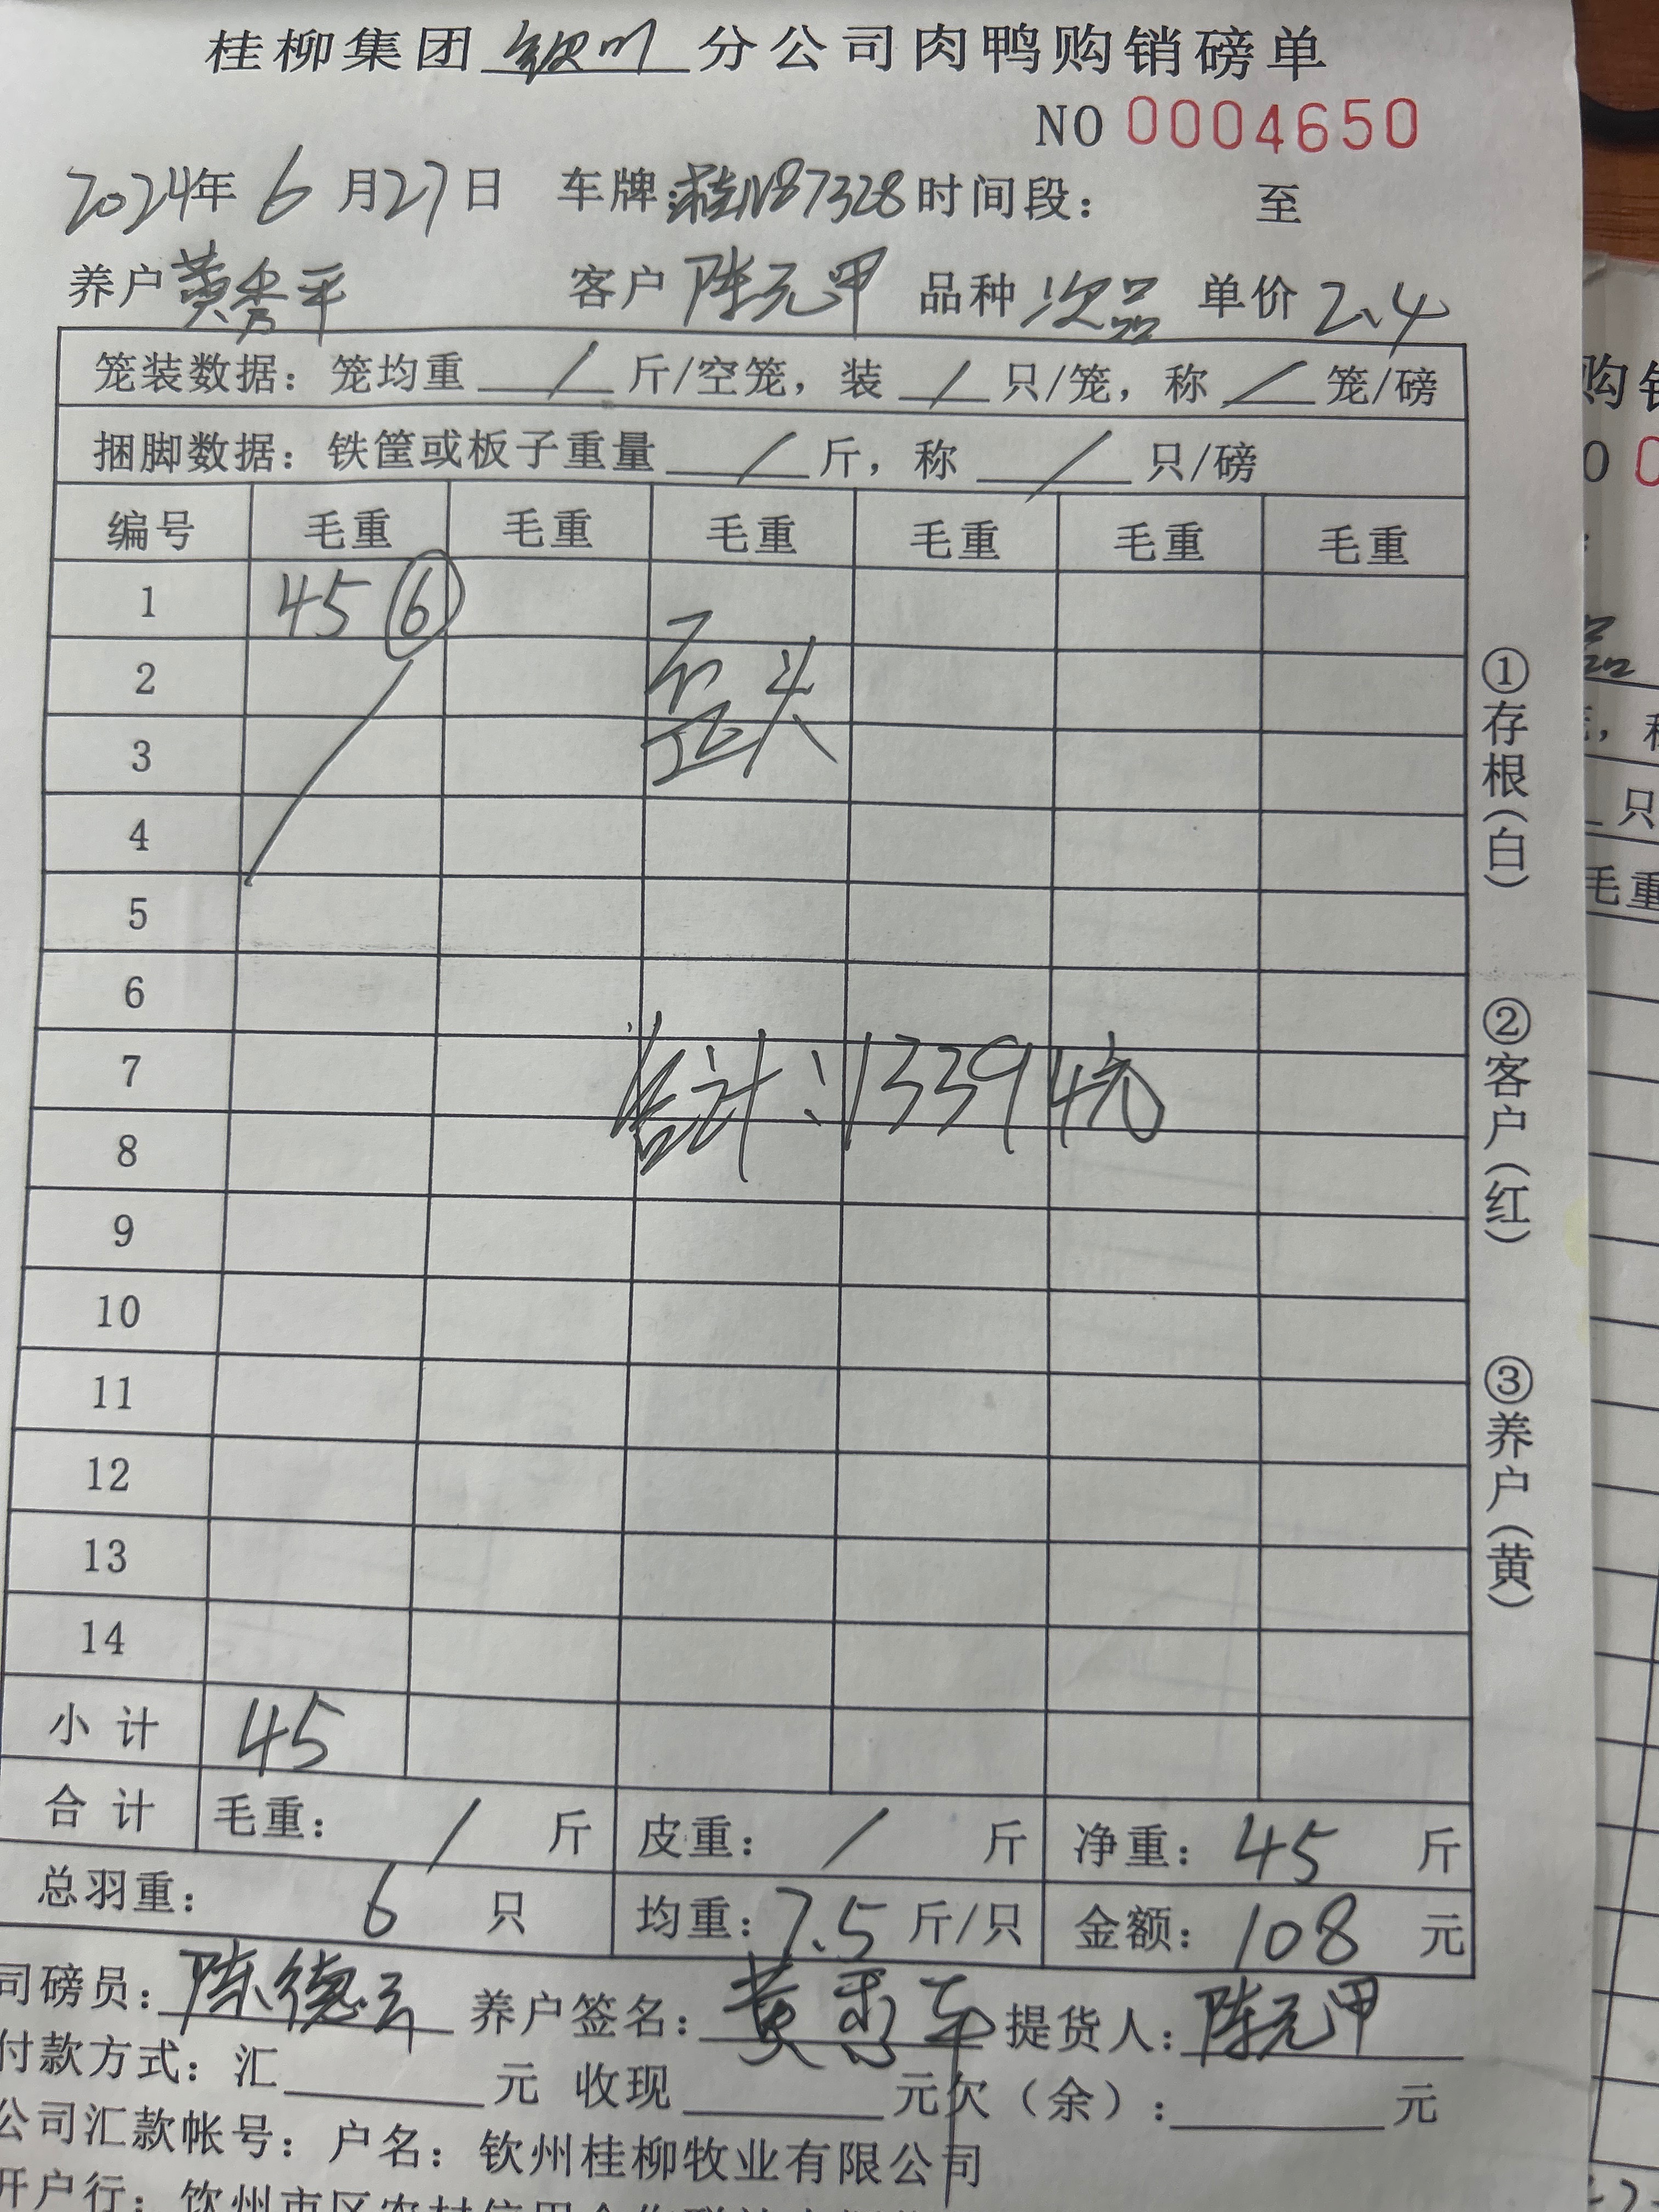 桂柳集团 钦州 分公司肉鸭购销磅单
NO 0004650
2024年 6 月27日 车牌:桂N87328 时间段: 至
养户 黄秀平 客户 陈元甲 品种 次品 单价 2.4
笼装数据: 笼均重 / 斤/空笼, 装 / 只/笼, 称 / 笼/磅
捆脚数据: 铁筐或板子重量 / 斤, 称 / 只/磅
编号 毛重 毛重 毛重 毛重 毛重 毛重
1 45 ⑥
2
3
4
5
6
7
合计:13394元
8
9
10
11
12
13
14
小计 45
合计 毛重: / 斤 皮重: / 斤 净重: 45 斤
总羽重: 6 只 均重: 7.5 斤/只 金额: 108 元
司磅员: 陈德云 养户签名: 黄秀平 提货人: 陈元甲
付款方式: 汇 元 收现 元 欠(余): 元
公司汇款帐号: 户名: 钦州桂柳牧业有限公司
开户行: 钦州市区农村信用合作联社
①存根(白)
②客户(红)
③养户(黄)
购销
毛重